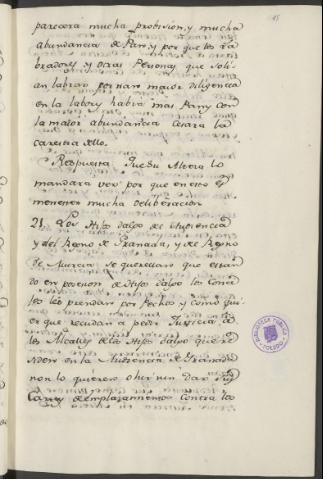 parecera mucha probision, y mucha
abundancia de Pan, y por que los La
bradores y otras Personas que soli
an labrar pornan maior diligencia
en la labor y habra mas Pan y con
la maior abundancia cesara la
carestia dello.
Respuesta Que su Alteza lo
mandara ver por que en eso es
menester mucha deliberacion
21. Los Hijos dalgo de
y del Reyno de Granada, y de Reyno
de Murcia se querellan que estan
do en posesion de Hijos dalgo los Conce
jos los prendan por Pechos y como qui
er que recudan a pedir Justicia a
los Alcaldes de los Hijos dalgo que re
siden en la Audiencia de Granada
non lo quieren ohir nin dar sus
Cartas de emplazamiento contra los
BIBLIOTECA PUBLICA
TOLEDO